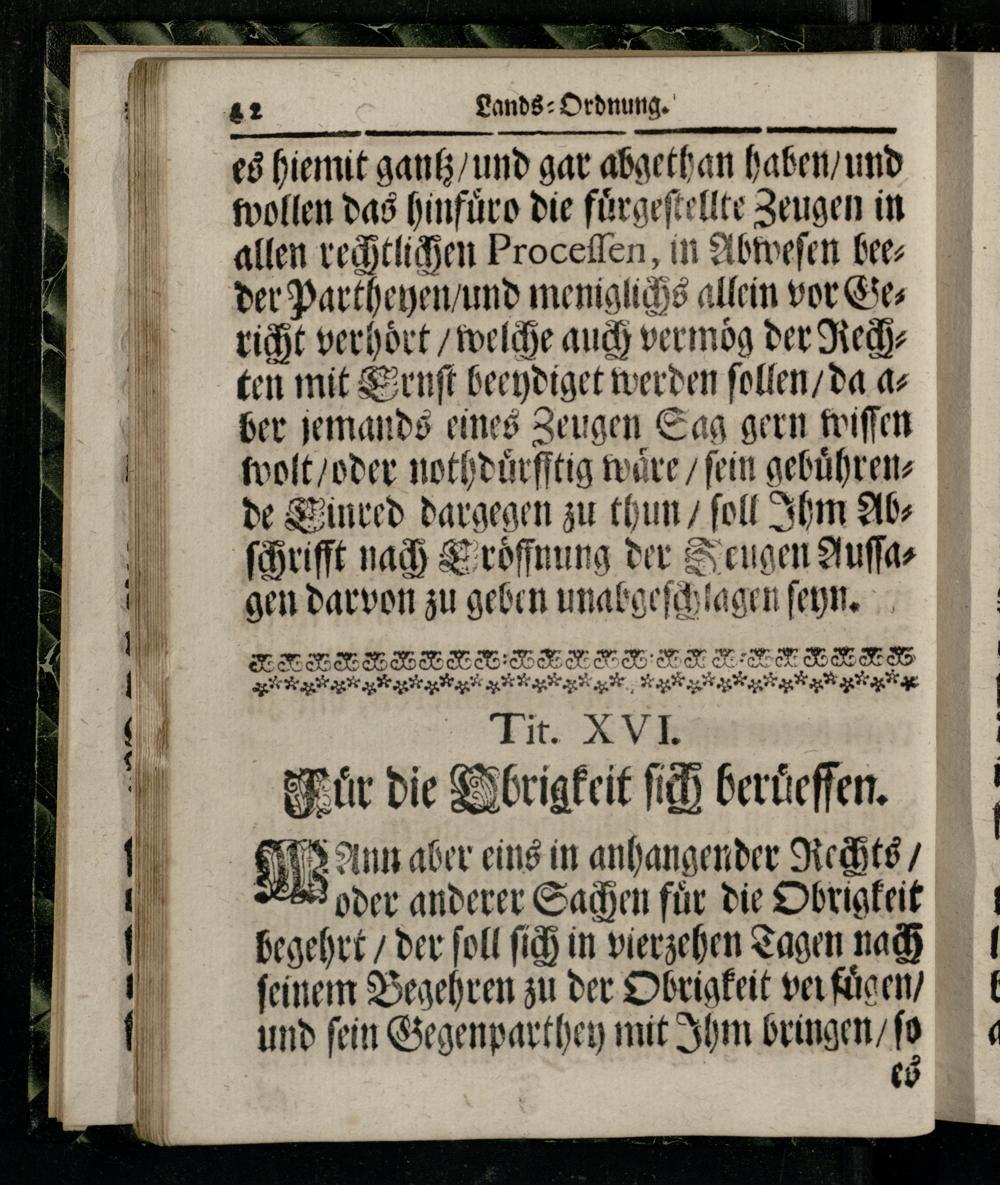 42 Lands-Ordnung.
es hiemit gantz/und gar abgethan haben/und
wollen das hinfüro die fürgestellte Zeugen in
allen rechtlichen Processen, in Abwesen bee-
der Partheyen/und meniglichs allein vor Ge-
richt verhört / welche auch vermög der Rech-
ten mit Ernst beeydiget werden sollen/da a-
ber jemands eines Zeugen Sag gern wissen
wolt/oder nothdürfftig wäre / sein gebühren-
de Einred dargegen zu thun / soll Ihm Ab-
schrifft nach Eröffnung der Zeugen Aussa-
gen darvon zu geben unabgeschlagen seyn.
Tit. XVI.
Für die Obrigkeit sich berüeffen.
WAnn aber eins in anhangender Rechts /
oder anderer Sachen für die Obrigkeit
begehrt / der soll sich in vierzehen Tagen nach
seinem Begehren zu der Obrigkeit verfügen/
und sein Gegenparthey mit Ihm bringen/ so
es